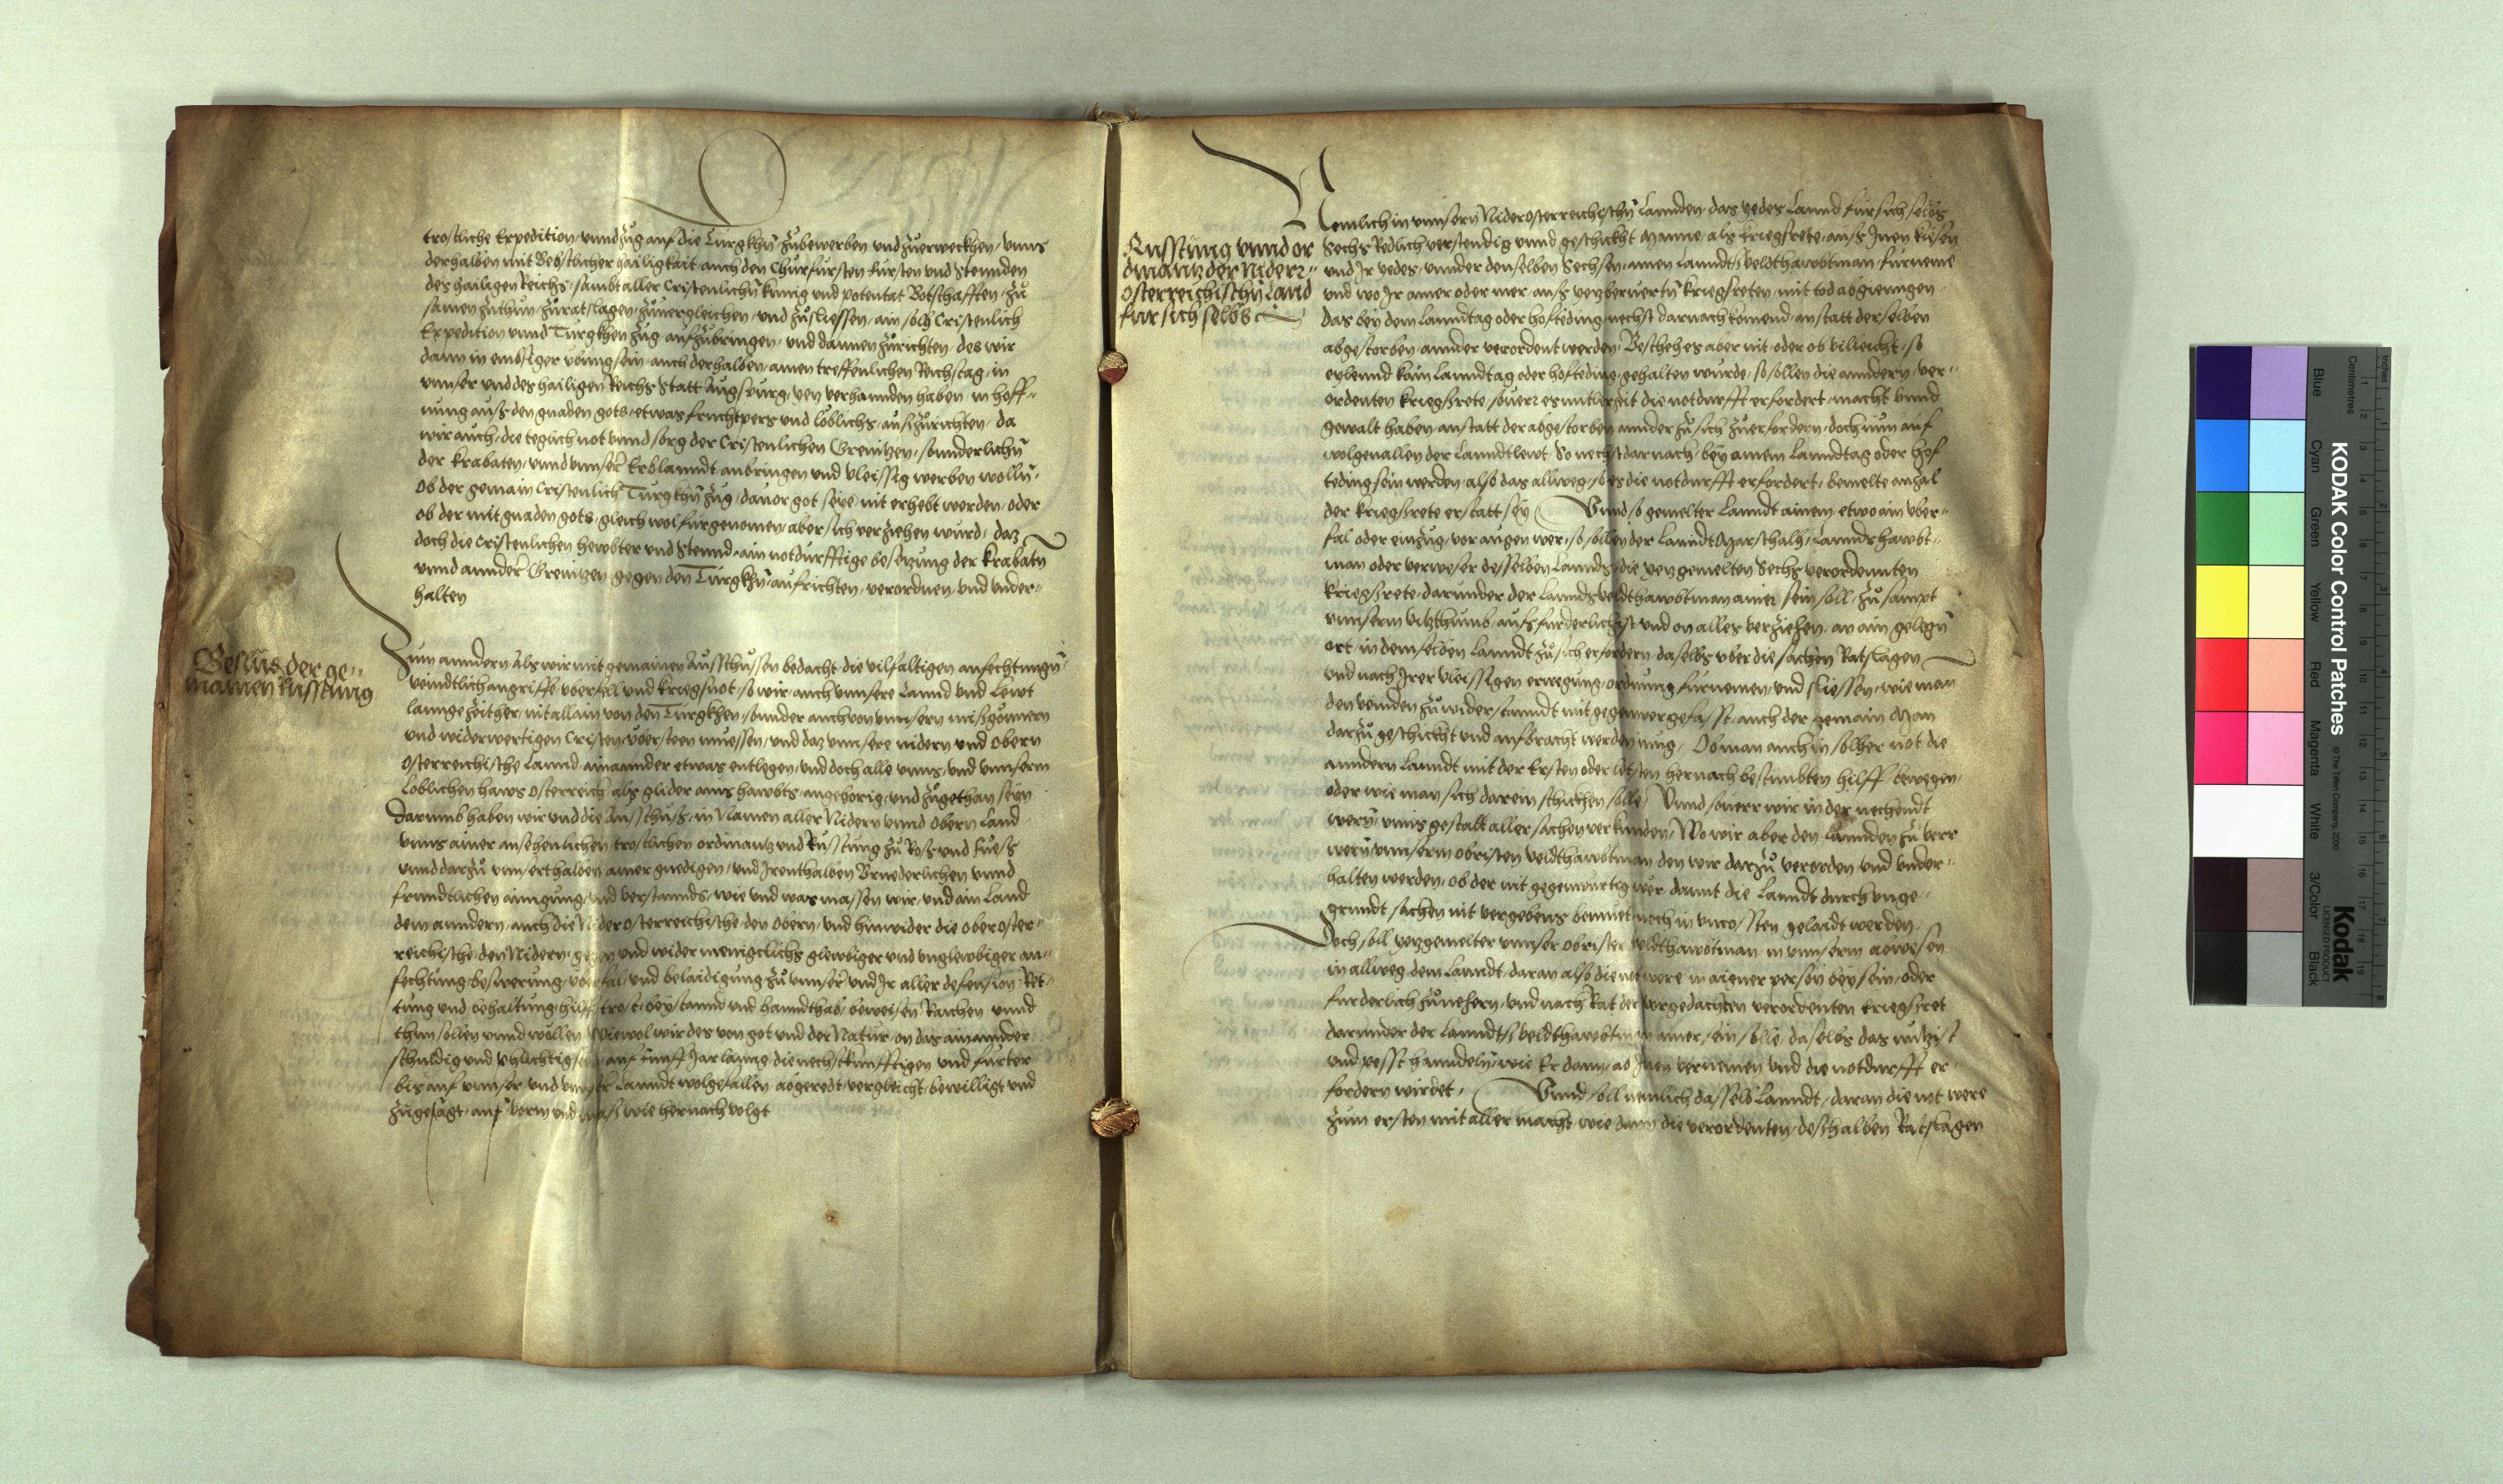 trostliche Expedition, vnnd zug auf die Turgkhn̄ zubewerben vnd zuerweckhen, vnns
derhalben mit Bebstlicher hailigkait auch den Churfursten fursten vnd Stennden
des hailigen Reichs, sambt aller Cristenlichn̄ kunig vnd potentat Botschafften, zu
samen zuthun, zuratslagen, zuuergleichen, vnd zusliessen, ain solh Cristenlich
Expedition vnnd Turgkhen zug aufzubringen, vnd dannen zurichten, des wir
dann in embsiger vbung sein, auch derhalben, ainen treffenlichen Reichstag, in
vnnser vnd des hailigen Reichs Statt Augspurg, yetz verhannden haben, in hoff-
nung auss den gnaden gots, etwas fruchtpers vnd loblichs, auszurichten, da
wir auch, die teglich not vnnd sorg der Cristenlichen Grenitzen, sonnderlichn̄
der Krabaten, vnnd vnnser Erblanndt anbringen vnd vleissig werben wolln̄,
Ob der gemain Cristenlich Turgkhn̄ zug, dauor got seye, nit erhebt werden, oder
ob der mit gnaden gots, gleich wol furgenomen, aber sich verziehen wurd, daz
doch die Cristenlichen hewbter vnd Stennd, ain notdurfftige besetzung der Krabatn̄
vnnd annder Grenitzen, gegen den Turgkhn̄ aufrichten, verordnen, vnd vnder-
halten
Beslus der ge-
mainen Russtung
Zum anndern Als wir mit gemainen Ausschussen bedacht, die vilfaltigen anfechtungn̄,
veindtlich angriffe vberfel vnd kriegsnot, so wir auch vnnsere Lannd vnd Lewt
lannge zeither, nit allain von den Turgkhen, sonnder auch von vnnsern missgönnern
vnd widerwertigen Cristen, vbersteen muessen, vnd daz vnnsere nidern vnd obern
Osterreichische Lannd, ainannder etwas entlegen, vnd doch alle vnns, vnd vnnserm
Loblichen haws Osterreich als glider ains hawbts, angehorig, vnd zugethan seyn
Darumb haben wir vnd die Ausschuss, in Namen aller Nidern vnnd Obern Land
vnns ainer ansehenlichen trostlichen ordinantz vnd Russtung zu Ross vnd fuess
vnnd darzu vnnserthalben ainer gnedigen, vnd Irenthalben Bruederlichen vnnd
frundtlichen ainigung, vnd verstannds, wie vnd was massen wir, vnd ain Land
dem anndern, auch die Niderosterreichische den Obern, vnd hinwider die oberoster-
reichische, den Nidern, gegen vnd wider menigclichs glewbiger vnd vnglewbiger an-
fechtung, beswerung, vberfal, vnd belaidigung, zu vnnser vnd Ir aller defension, Ret-
tung vnd behaltung, hilff, trost, beystannd vnd hanndthab, beweisen Raichen vnnd
thun sollen vnnd wöllen Wiewol wir des von got vnd der Natur, on das ainannder
schuldig vnd phlichtig sein auf funff Jar lanng die nechstkunfftigen vnd furter
bis auf vnnser vnd vnnser Lanndt wolgefallen abgeredt, vergleicht, bewilligt vnd
zugesagt, auf vorm vnd mass wie hernach volgt
Russtung vnnd or
dinantz der Nider-
osterreichischn̄ Land
fur sich selbs
Nemlich in vnnsern Niderosterreichischn̄ Lannden, das yedes Lannd fur sich selbs
Sechs Redlich verstendig vnnd geschickht Manne, als kriegsrete, auss Inen kiesen
vnd Ir yedes, vnnder denselben Sechsen, ainen Lanndtsveldthawbtman, furneme
vnd wo Ir ainer oder mer, auss yetzberuertn̄ kriegsreten, mit tod abgiengen,
das bey dem Lanndtag oder hofteding nechst darnach komend, an statt derselben
abgestorben annder verordent werden, Beschehe es aber nit, oder ob villeicht, so
eylennd kain Lanndtag oder hofteding gehalten wurde, so sollen die anndern, ver-
ordenten kriegsrete, souerr es mitlerzeit die notdurfft erfordert, macht vnnd
gewalt haben, an statt der abgestorben annder zu sich zuerfordern, doch nun auf
wolgeuallen der Lanndtlewt, So nechst darnach, bey ainem Lanndtag oder hof
teding sein werden, also das allweg, so es die notdurfft erfordert, bemelte anzal
der kriegsrete erstatt sey Vnnd so gemelter Lanndt ainem, etwo ain vber-
fal oder einzug, vor augen wer, so sollen der Lanndt Marschalh, Lanndshawbt-
man oder verweser desselben Lannds, die yetzgemelten Sechs verordennten
kriegsrete, darunder der Lanndsveldthawbtman ainer sein soll, zu sampt
vnnserm vitzthumb, aufs furderlichist vnd on alles verziehen, an ain gelegn̄
ort, in demselben Lanndt zu sich erfordern, daselbs vber die sachen Ratslagen
vnd nach Irer vleissigen erwegung, ordnung furnemen, vnd sliessen, wie man
den veinden zu widerstanndt mit gegenwer gefasst, auch der gemain Man
darzu geschickht vnd aufbracht werden mug, Ob man auch in solher not die
anndern Lanndt mit der Ersten oder letsten hernach bestimbten hilff bewegen,
oder wie man sich darein schickhen solle, Vnnd souerr wir in der nechendt
wern̄, vnns gestalt aller sachen verkunden, Wo wir aber den Lannden zu verr
wern̄ vnnserm obristen veldthawbtman den wir darzu verorden vnd vnder-
halten werden, ob der nit gegenwurtig wer, damit die Lanndt durch vnge-
grundt sachen nit vergebens bemuet noch in vncossten gelaidt werden,
Doch soll yetzgemelter vnnser obrister veldthawbtman in vnnserm abwesen
in allweg dem Lanndt, daran also die not were in aigner person beysein, oder
furderlich zunehern, vnd nach Rat der vorgedachten verordenten kriegsret
darunder der Lanndtsveldthawbtman ainer sein solle, daselbs das nutzist
vnd pesst hanndeln, wie Er dann, ab Inen vernemen vnd die notdurfft er-
fordern wirdet, Vnnd soll nemlich dasselb Lanndt, daran die not were
zum ersten mit aller macht, wie dann die verordenten, deshalben Ratslagen